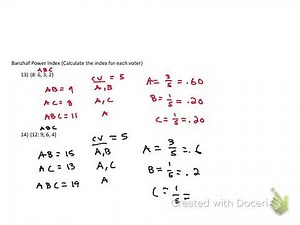 Banzhaf Power Index (Calculate the index for each voter)
A B C
13) (8: 6, 3, 2)
CV = 5
AB = 9 A, B
AC = 8 A, C
ABC = 11 A
A = 3/5 = .60
B = 1/5 = .20
C = 1/5 = .20
A B C
14) (12: 9, 6, 4)
CV = 5
AB = 15 A, B
AC = 13 A, C
ABC = 19 A
A = 3/5 = .6
B = 1/5 = .2
C = 1/5 =
Created with Doceri